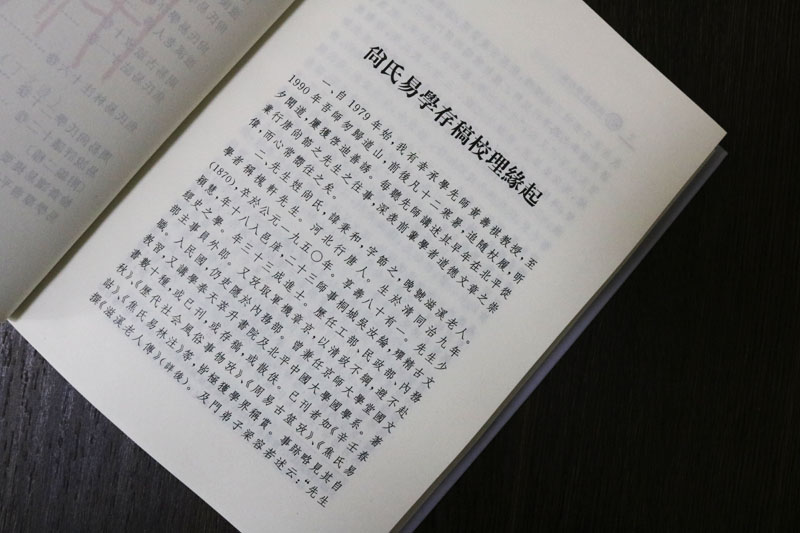 尚氏易學存稿校理緣起
一、自 1979 年始,我有幸承學先師黃壽祺教授,至
1990 年吾師匆歸道山,前後凡十二寒暑,追隨杖履,朝
夕聞道,屢獲啓迪善誘。每聆先師講述其早年在北平從
業行唐尚節之先生之往事,深表前輩學者道德文章之崇
偉,而心常嚮往之矣。
二、先生姓尚氏,諱秉和,字節之,晚號滋溪老人。
學者稱槐軒先生。河北行唐人。生於清同治九年
(1870),卒於公元一九五〇年。享壽八十有一。先生少
穎慧,年十八入邑庠,二十三師事桐城吳汝綸,殫精古文
經史之學。年三十二成進士。歷任工部、民政部、內務
部主事員外郎。又攷取軍機章京,以清政不綱,避不赴
職。入民國,仍吏隱於內務部。曾兼任京師大學堂國文
教習,又講學奉天萃升書院及北平中國大學國學系。著
書數十種,或已刊,或存稿,或散佚。已刊者如《辛壬春
秋》、《歷代社會風俗事物攷》、《周易古筮攷》、《焦氏易
詁》、《焦氏易林注》等,皆極獲學界稱賞。事跡略見其自
撰《滋溪老人傳》(詳後)。及門弟子梁容若述云:“先生